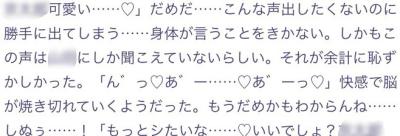 可愛い……♡」だめだ……こんな声出したくないのに
勝手に出てしまう……身体が言うことをきかない。しかもこ
の声はにしか聞こえていないらしい。それが余計に恥ず
かしかった。「ん゛っ♡あ゛ー……♡あ゛ーっ♡」快感で脳
が焼き切れていくようだった。もうだめかもわからんね……
しぬぅ……！「もっとシたいな……♡いいでしょ？